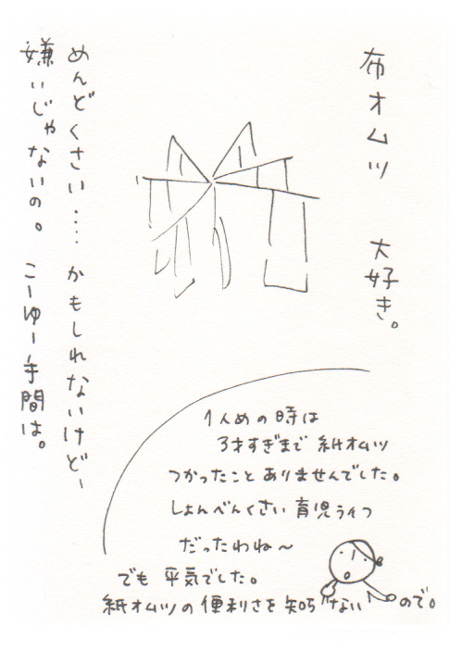 布オムツ 大好き。
めんどくさい‥‥かもしれないけどー
嫌いじゃないの。こーゆー手間は。
1人めの時は
3才すぎまで 紙オムツ
つかったこと ありませんでした。
しょんべんくさい 育児ライフ
だったわね〜
でも 平気でした。
紙オムツの便利さを知らないので。